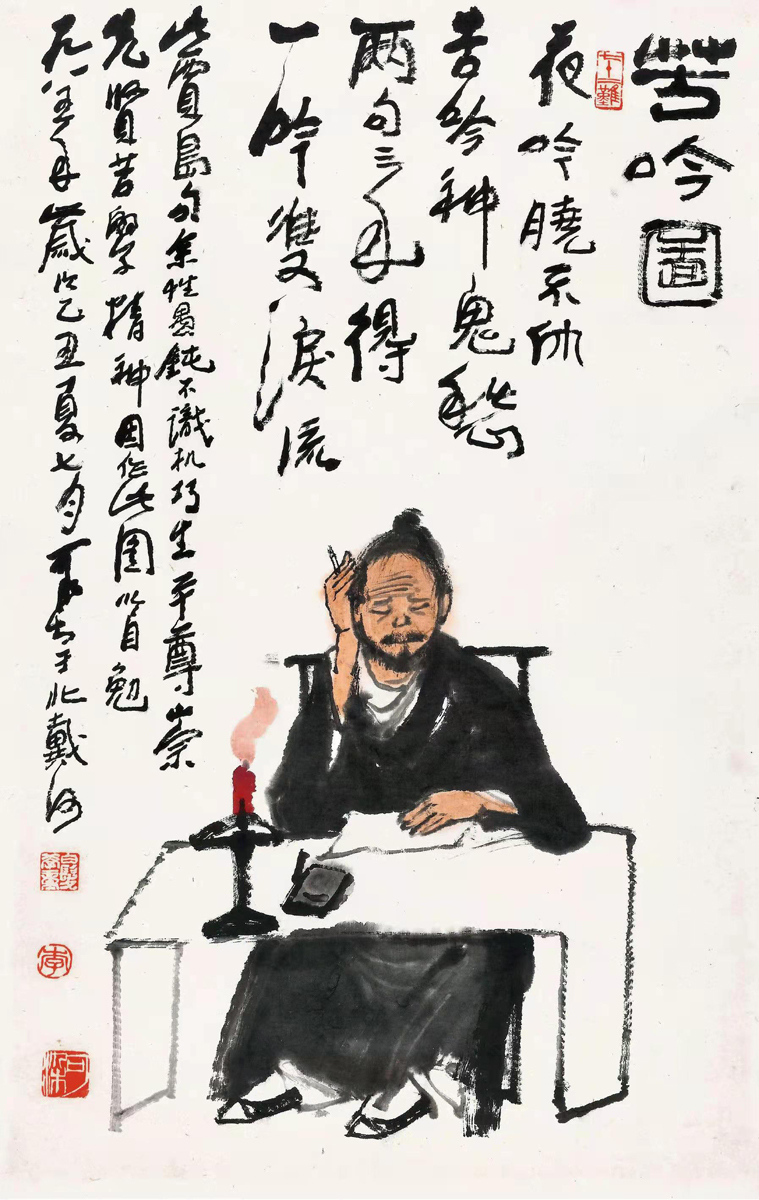 苦吟圖
七十二難
夜吟曉不休
苦吟神鬼愁
两句三年得
一吟雙淚流
此賈島句余性愚鈍不識机巧生平尊崇
先賢苦學精神因作此图以自勉
一九八五年歲次乙丑夏七月可染于北戴河
白髮學童
李
可染